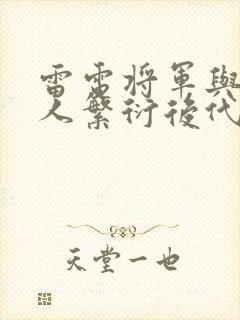 雷雷將軍與
人繁衍後代
天堂一也